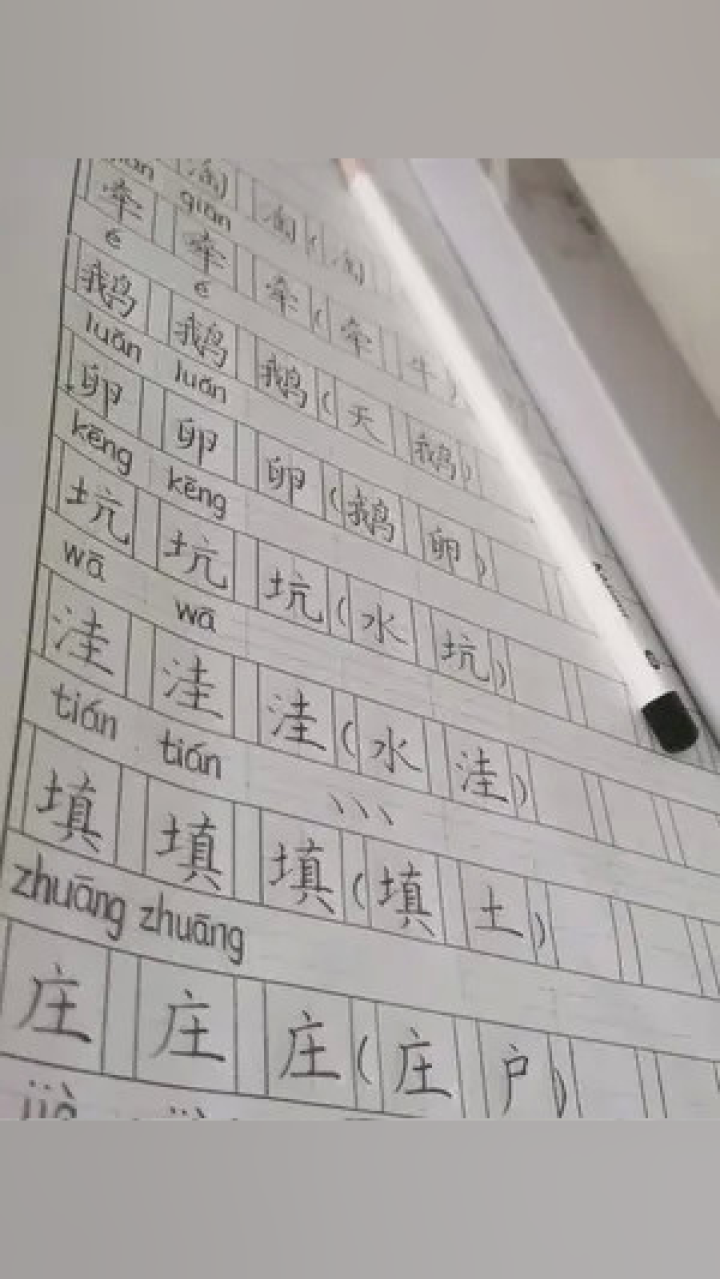 qiān
牵 牵 牵 ( 牵 牛 )
é é
鹅 鹅 鹅 ( 天 鹅 )
luǎn luǎn
卵 卵 卵 ( 鹅 卵 )
kēng kēng
坑 坑 坑 ( 水 坑 )
wā wā
洼 洼 洼 ( 水 洼 )
tián tián
填 填 填 ( 填 土 )
zhuāng zhuāng
庄 庄 庄 ( 庄 户 )